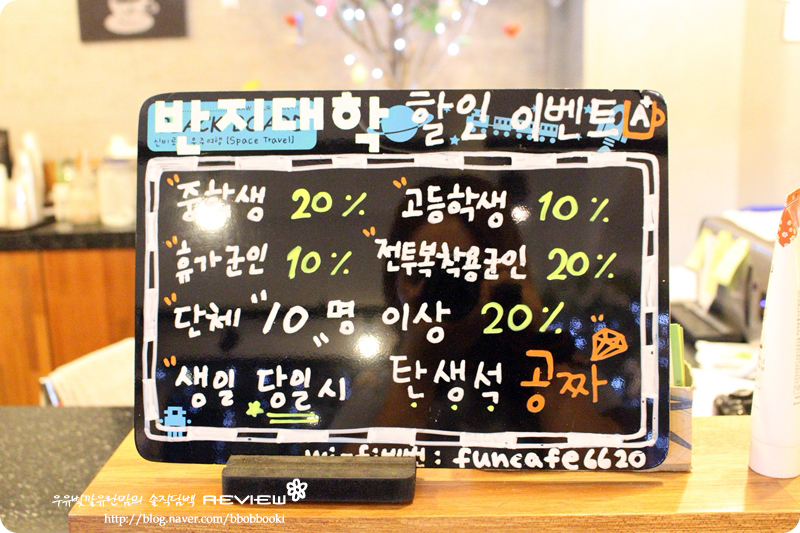 반지대학 할인 이벤트
신비로운 우주여행 [Space Travel]
"중학생 20% "고등학생 10%
"휴가군인 10% "전투복착용군인 20%
"단체 "10"명 이상 20%
"생일 당일시 탄생석 공짜
wi-fi비번 : funcafe6620
우유빛깔유천맘의 솔직담백 REVIEW
http://blog.naver.com/bbobbooki